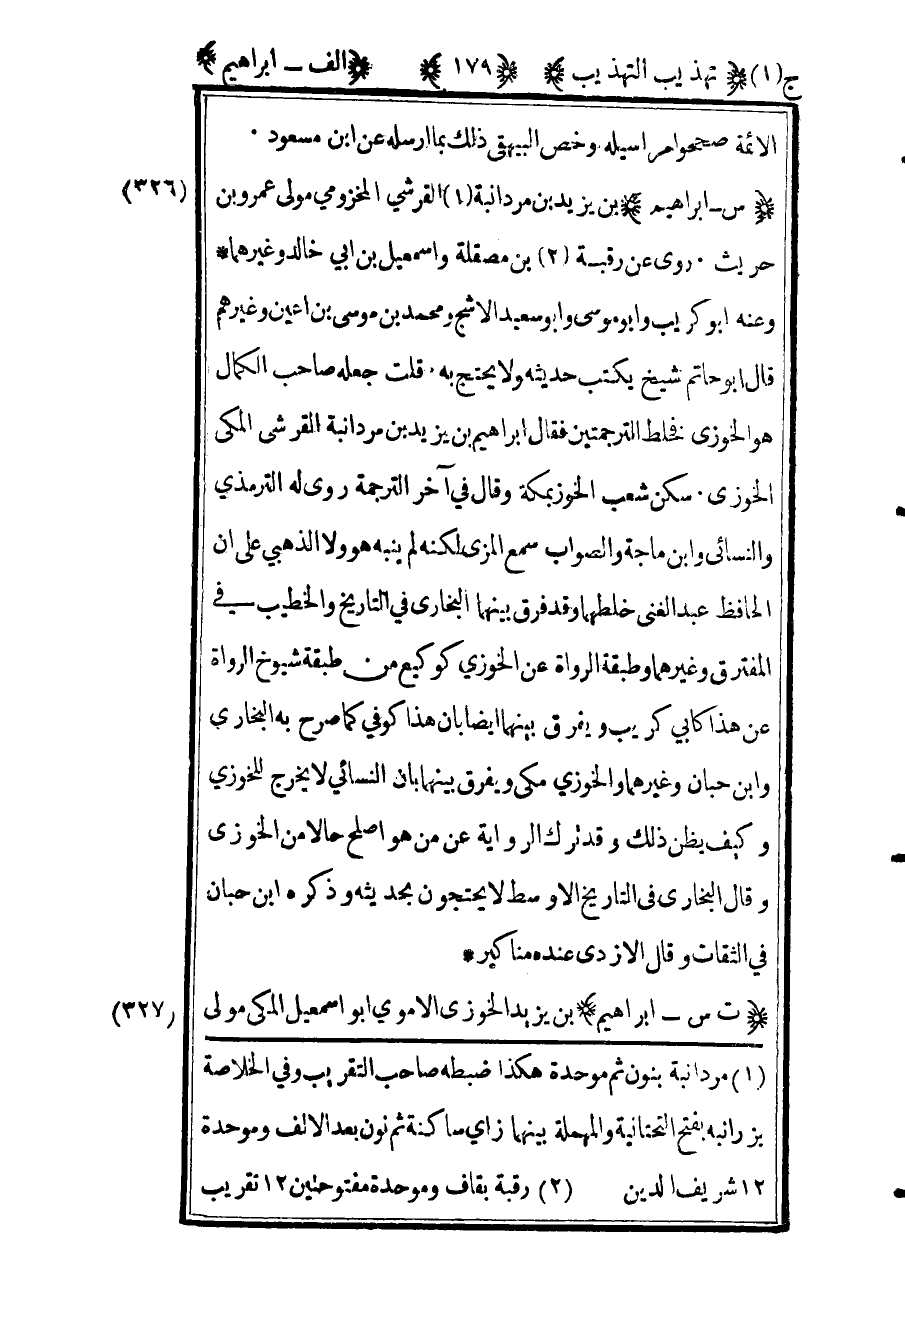 ج(١) تهذيب التهذيب ١٧٩ الف ـ ابراهيم
الائمة صححوا مراسيله وخص البيهقي ذلك بما ارسله عن ابن مسعود ·
(٣٢٦) س ـ ابراهيم بن يزيد بن مردانبة (١) القرشي المخزومي مولى عمرو بن
حريث · روى عن رقبة (٢) بن مصقلة واسمعيل بن ابي خالد وغيرهما *
وعنه ابو كريب وابو موسى وابو سعيد الاشج ومحمد بن موسى بن اعين وغيرهم
قال ابو حاتم شيخ يكتب حديثه ولا يحتج به · قلت جعله صاحب الكمال
هو الخوزى فخلط الترجمتين فقال ابراهيم بن يزيد بن مردانبة القرشى المكى
الخوزى · سكن شعب الخوز بمكة وقال في آخر الترجمة روى له الترمذي
والنسائى وابن ماجة والصواب سمع المزى لكنه لم ينبه هو ولا الذهبي على ان
الحافظ عبد الغنى خلطهما وقد فرق بينهما البخارى في التاريخ والخطيب في
المفترق وغيرهما وطبقة الرواة عن الخوزي كوكيع من طبقة شيوخ الرواة
عن هذا كابي كريب ويفرق بينهما ايضا بان هذا كوفي كما صرح به البخاري
وابن حبان وغيرهما والخوزي مكى ويفرق بينهما بان النسائي لا يخرج للخوزي
وكيف يظن ذلك وقد ترك الرواية عن من هو اصلح حالا من الخوزى
وقال البخارى فى التاريخ الاوسط لا يحتجون بحديثه وذكره ابن حبان
في الثقات وقال الازدى عنده مناكير *
(٣٢٧) ت س ـ ابراهيم بن يزيد الخوزى الاموي ابو اسمعيل المكى مولى
(١) مردانبة بنون ثم موحدة هكذا ضبطه صاحب التقريب وفي الخلاصة
يزرانبه بفتح التحتانية والمهملة بينهما زاي ساكنة ثم نون بعد الالف وموحدة
١٢ شريف الدين (٢) رقبة بقاف وموحدة مفتوحتين ١٢ تقريب